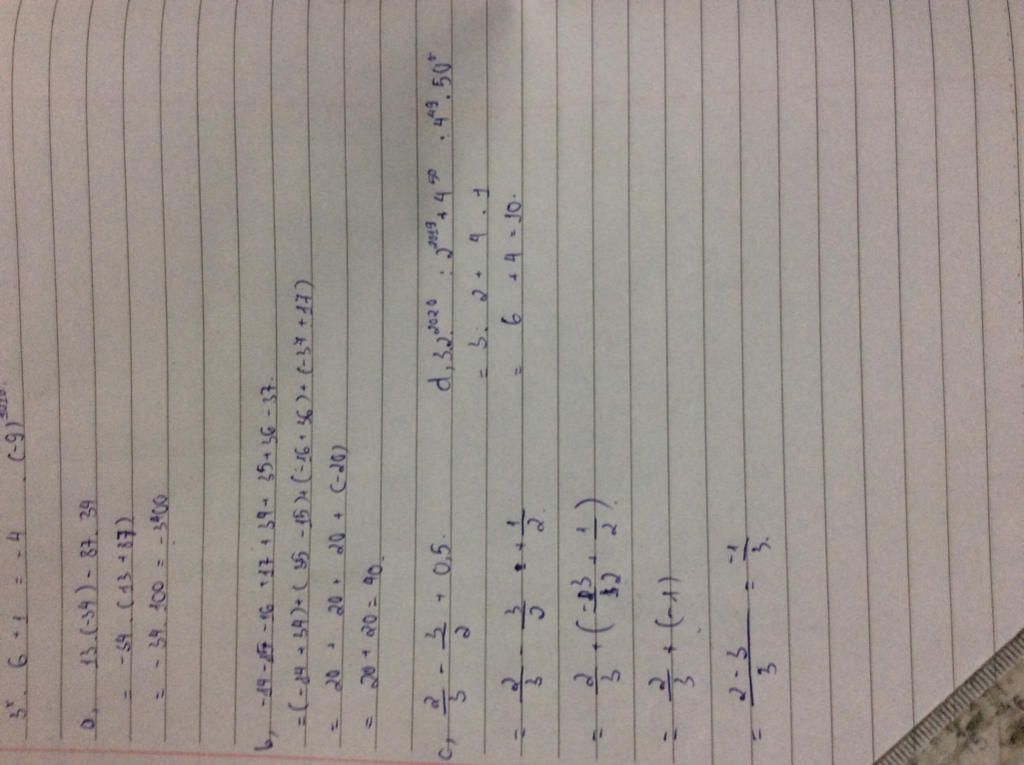 3ˣ . 6 + 1 = -4 . (-9)
a, 13.(-34) - 87 34
= -34 . (13 + 87)
= -34 . 100 = -3400
b, -14 - 15 - 16 + 17 + 34 + 35 + 36 - 37.
= (-14 + 34) + (35 - 15) + (-16 + 36) + (-37 + 17)
= 20 + 20 + 20 + (-20)
= 20 + 20 = 40.
c, 2/3 - 3/2 + 0,5.
= 2/3 - 3/2 + 1/2
= 2/3 + (-3/2 + 1/2)
= 2/3 + (-1)
= 2-3/3 = -1/3.
d, 3.2²⁰²⁰ : 2²⁰¹⁹ + 4⁵⁰ : 4⁴⁹ . 50°
= 3. 2 + 4 . 1
= 6 + 4 = 10.